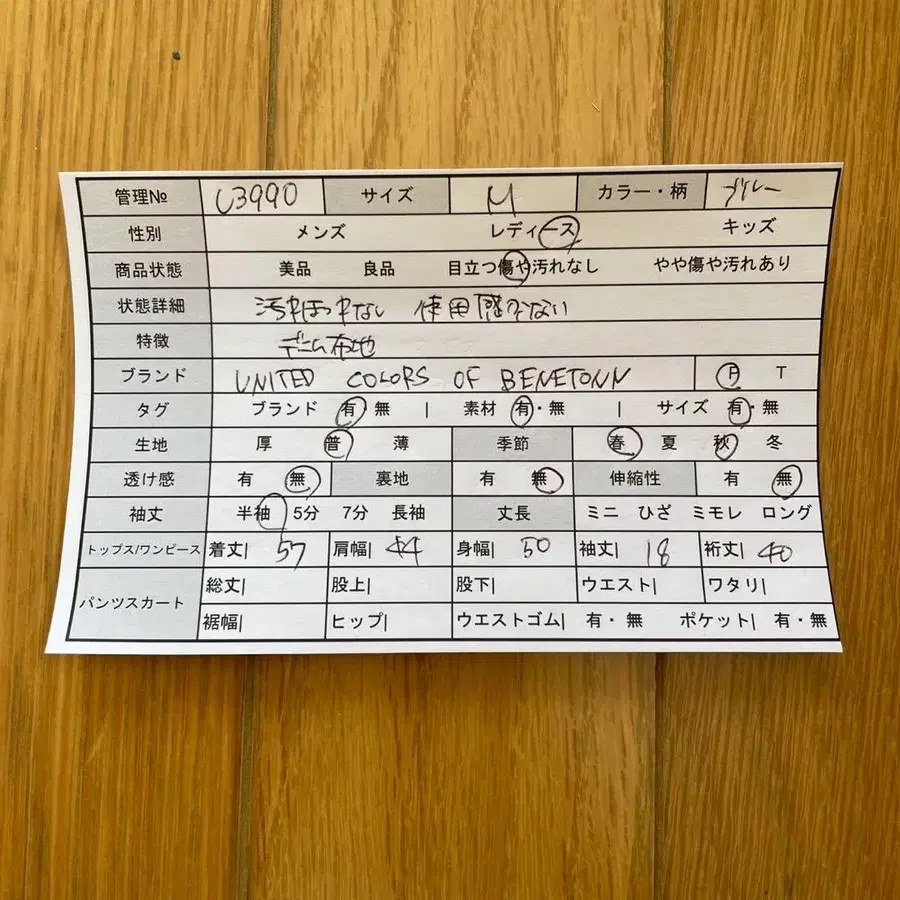 管理№ U3990 サイズ M カラー・柄 ブルー
性別 メンズ レディース キッズ
商品状態 美品 良品 目立つ傷や汚れなし やや傷や汚れあり
状態詳細 汚れほつれない 使用感少ない
特徴 デニム布地
ブランド UNITED COLORS OF BENETONN P T
タグ ブランド 有・無 | 素材 有・無 | サイズ 有・無
生地 厚 普 薄 季節 春 夏 秋 冬
透け感 有 無 裏地 有 無 伸縮性 有 無
袖丈 半袖 5分 7分 長袖 丈長 ミニ ひざ ミモレ ロング
トップス/ワンピース 着丈| 57 肩幅| 44 身幅| 50 袖丈| 18 裄丈| 40
パンツスカート 総丈| 股上| 股下| ウエスト| ワタリ|
裾幅| ヒップ| ウエストゴム| 有・無 ポケット| 有・無